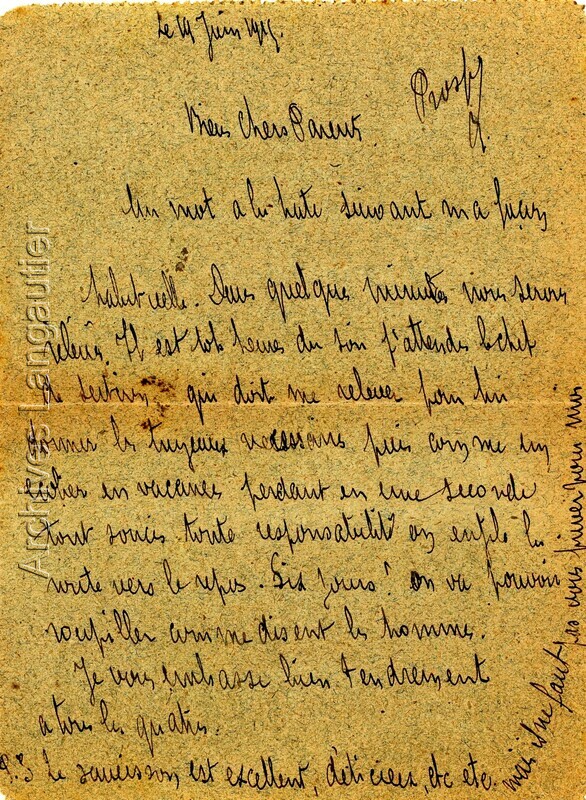 Le 19 Juin 1915.
Prosp
Biens Chers Parents
Un mot a la hate suivant ma façon
habituelle. Dans quelques minutes nous serons
relevés. Il est heures du soir j'attends le chef
de section qui doit me relever pour lui
donner les tuyaux necessaires puis comme un
en vacances perdant en une seconde
tout soucis toute responsabilité on enfile la
route vers le repos. Six jours! on va pouvoir
roupiller comme disent les hommes.
Je vous embrasse bien tendrement
a tous les quatres.
P.S Le saucisson est excellent, délicieux, etc etc.
mais il ne faut pas vous priver pour moi
Archives Langautier